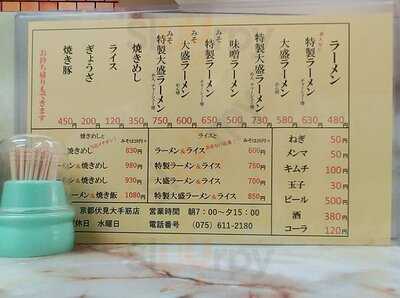 ラーメン 480円
特製ラーメン 630円
大盛ラーメン 580円
特製大盛ラーメン 730円
味噌ラーメン 500円
みそ特製ラーメン 650円
みそ大盛ラーメン 600円
みそ特製大盛ラーメン 750円
焼きめし 350円
ライス 120円
ぎょうざ 200円
焼き豚 450円
お持ち帰りもできます
焼きめしと
みそは20円
焼きめし 830円
ーメン&焼きめし 980円
ーメン&焼きめし 930円
ラーメン&焼き飯 1080円
ライスと
みそは20円
ラーメン&ライス 600円
特製ラーメン&ライス 750円
大盛ラーメン&ライス 700円
特製大盛ラーメン&ライス 850円
ねぎ 50円
メンマ 50円
キムチ 100円
玉子 30円
ビール 500円
酒 380円
コーラ 120円
京都伏見大手筋店 営業時間 朝7:00〜夕15:00
休日 水曜日 電話番号 (075)611-2180